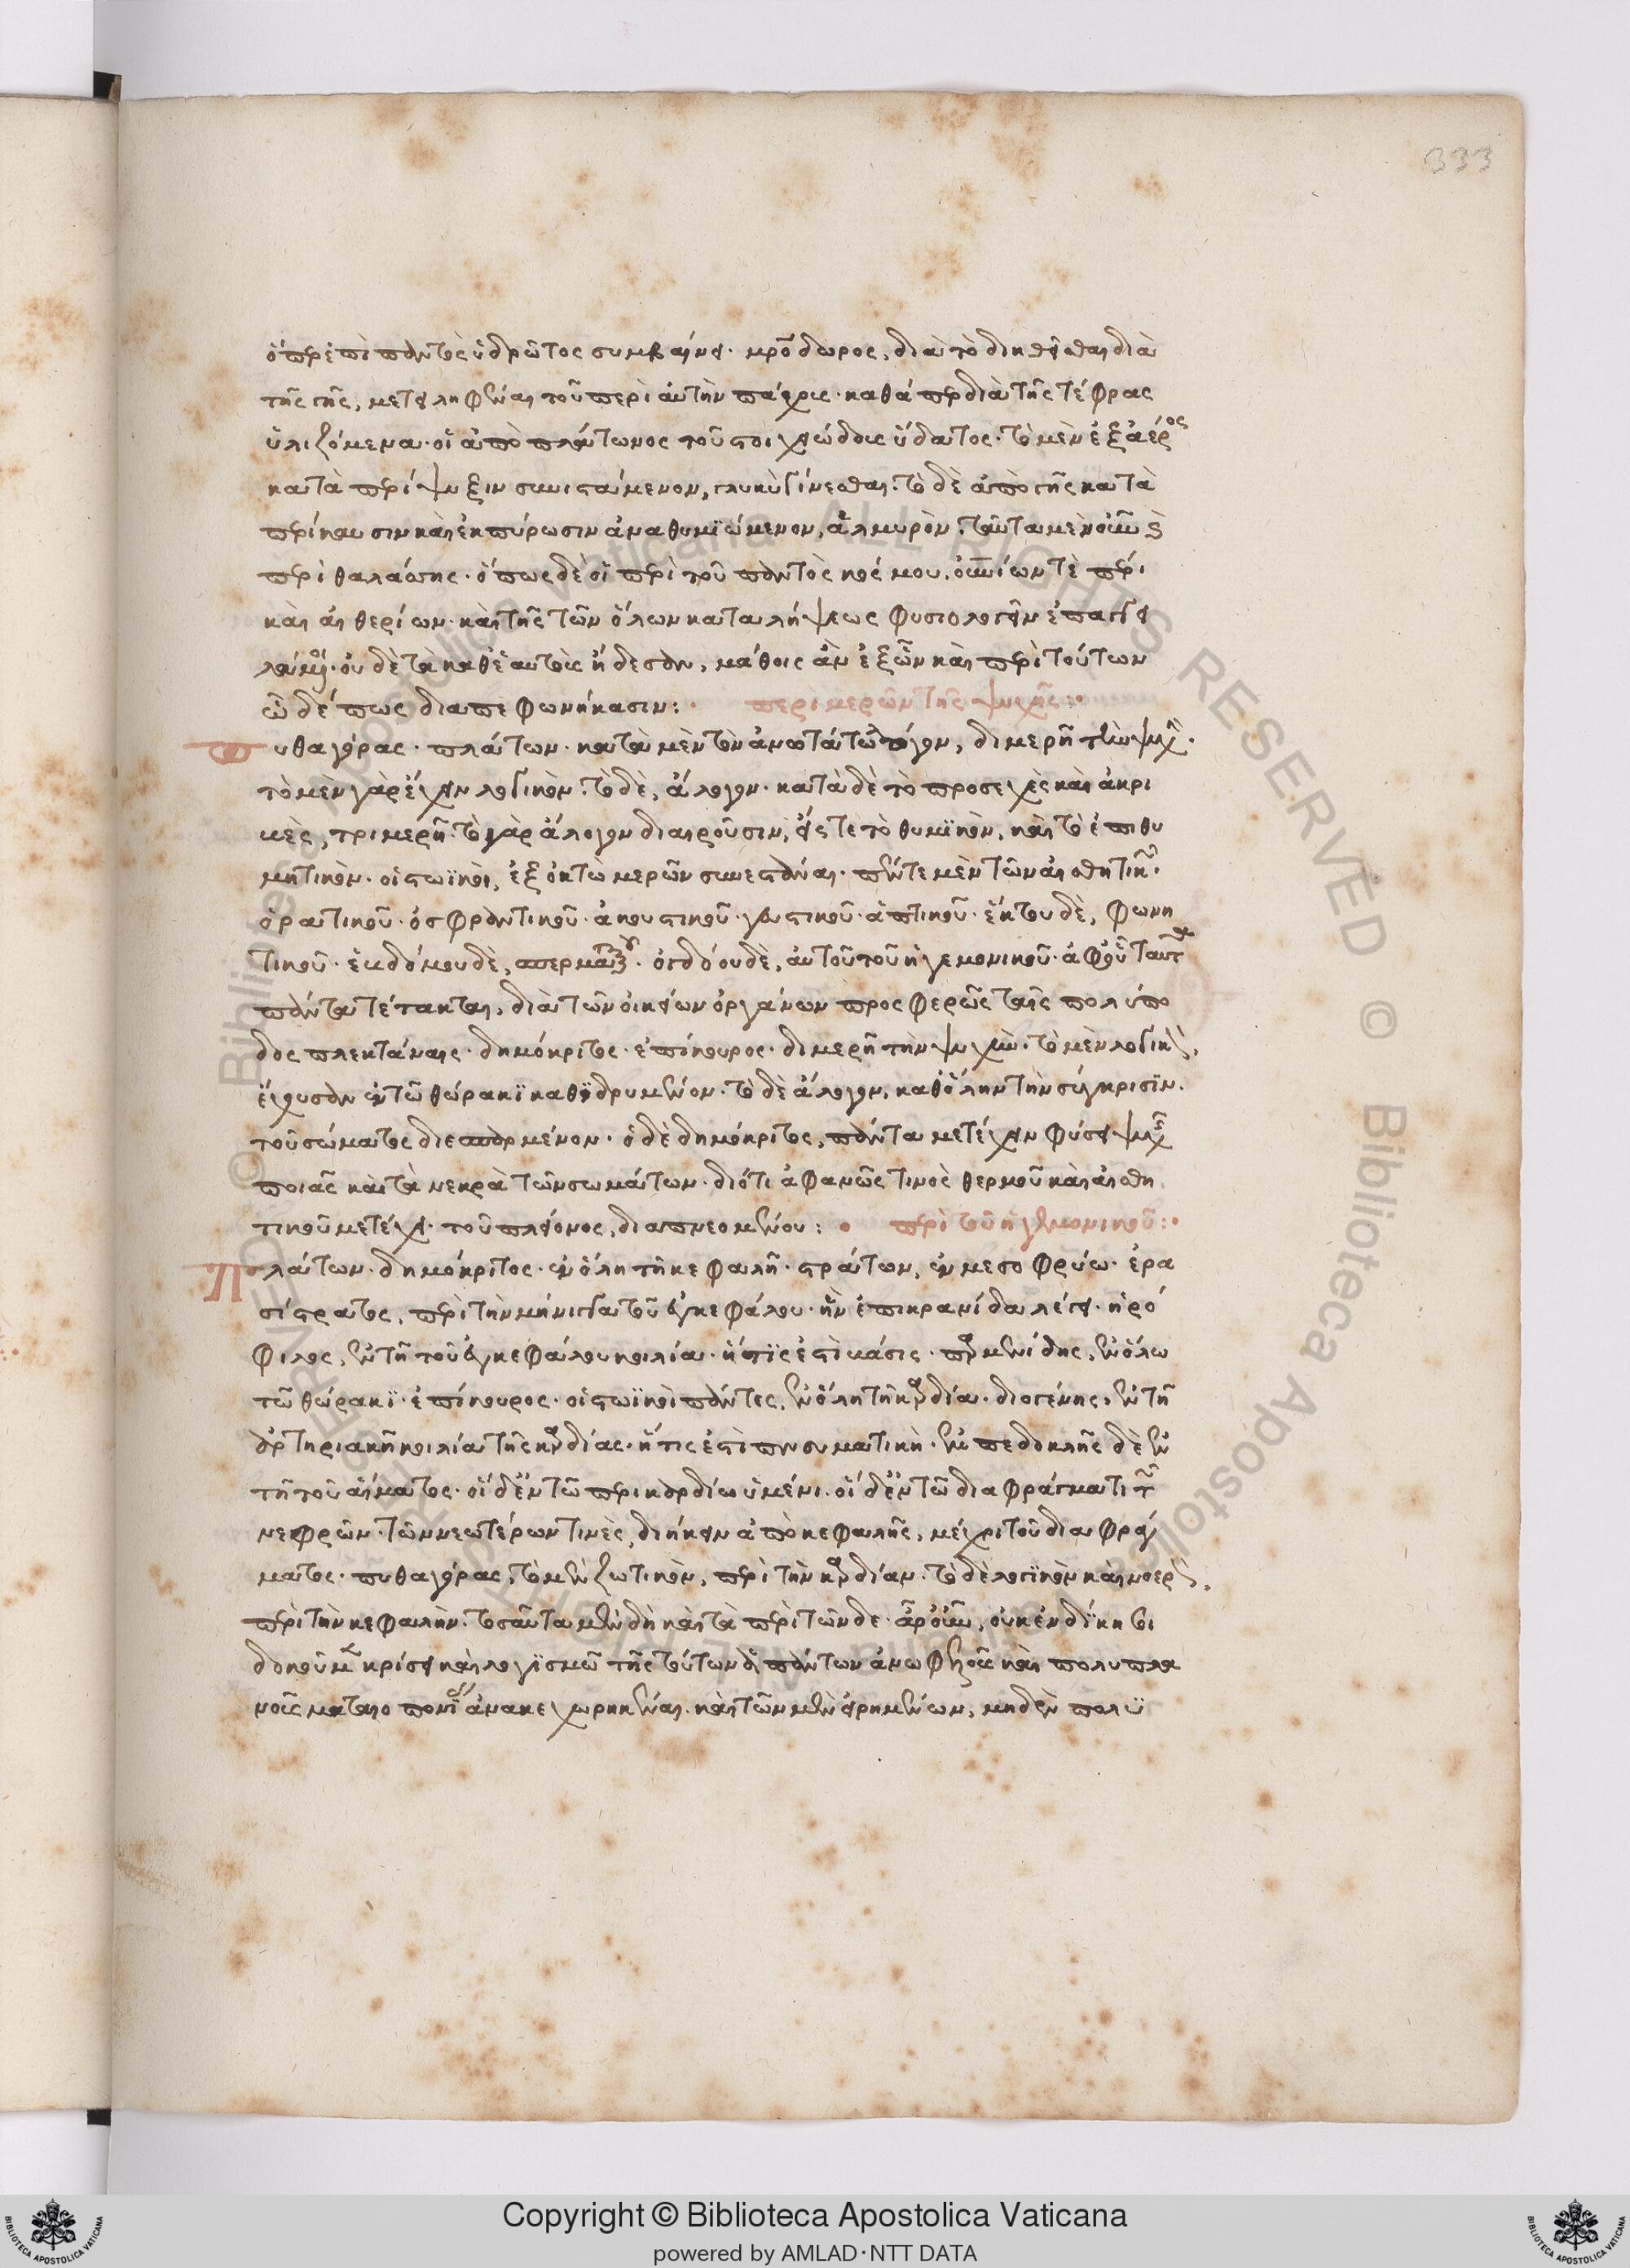 333
ὅπερ ἐπὶ παντὸς ἱδρῶτος συμβαίνει· μρόδωρος, διὰ τὸ διηθεῖσθαι διὰ
τῆς γῆς, μετειληφέναι τοῦ περὶ αὐτὴν πάχους· καθάπερ διὰ τῆς τέφρας
ὑλιζόμενα· οἱ ἀπὸ πλάτωνος τοῦ στοιχειώδους ὕδατος· τὸ μὲν ἐξ ἀέρος
κατὰ περίψυξιν συνιστάμενον, γλυκὺ γίνεσθαι· τὸ δὲ ἀπὸ γῆς κατὰ
περίκαυσιν καὶ ἐκπύρωσιν ἀναθυμϊώμενον, ἁλμυρόν· ταῦτα μὲν οὖν καὶ
περὶ θαλάσσης· ὅπως δὲ οἱ περὶ τοῦ παντὸς κόσμου, οὐνίων τὲ πέρι
καὶ αἰθερίων· καὶ τῆς τῶν ὅλων καταλήψεως φυσιολογεῖν ἐπαγγει
λάμενοι· οὐδὲ τὰ καθ' ἑαυτοὺς ᾔδεσαν, μάθοις ἂν ἐξ ὧν καὶ περὶ τούτων
ὧδέ πως διαπεφωνήκασιν: περὶ μερῶν τῆς ψυχῆς:
Πυθαγόρας· πλάτων· κατὰ μὲν τὸν ἀνωτάτω λόγον, διμερῆ τὴν ψυχήν·
τὸ μὲν γὰρ ἔχειν λογικόν· τὸ δὲ, ἄλογον· κατὰ δὲ τὸ προσεχὲς καὶ ἀκρι
βὲς, τριμερῆ· τὸ γὰρ ἄλογον διαιροῦσιν, εἴς τε τὸ θυμϊκὸν, καὶ τὸ ἐπιθυ
μητικόν· οἱ στωϊκοὶ, ἐξ ὀκτὼ μερῶν συνεστάναι· πέντε μὲν τῶν αἰσθητικῶν·
ὁρατικοῦ· ὀσφραντικοῦ· ἀκουστικοῦ· γευστικοῦ· ἁπτικοῦ· ἕκτου δὲ, φωνη
τικοῦ· ἑβδόμου δὲ, σπερματικοῦ· ὀγδόου δὲ, αὐτοῦ τοῦ ἡγεμονικοῦ· ἀφ' οὗ ταῦτα
πάντα τέτακται, διὰ τῶν οἰκείων ὀργάνων προσφερῶς ταῖς πολύπο
δος πλεκτάναις· δημόκριτος· ἐπίκουρος· διμερῆ τὴν ψυχήν· τὸ μὲν λογικὸν,
ἔχουσαν ἐν τῶ θώρακϊ καθϊδρυμένον· τὸ δὲ ἄλογον, καθ' ὅλην τὴν σύγκρισϊν
τοῦ σώματος διεσπαρμένον· ὁ δὲ δημόκριτος, πάντα μετέχειν φύσει ψυχῆς
ποιᾶς καὶ τὰ νεκρὰ τῶν σωμάτων· διότι ἀφανῶς τινὸς θερμοῦ καὶ αἰσθη
τικοῦ μετέχει· τοῦ πλείονος, διαπνεομένου: περὶ τοῦ ἡγεμονικοῦ:
Πλάτων· δημόκριτος· ἐν ὅλη τῆ κεφαλῆ· στράτων, ἐν μεσοφρύω· ἐρα
σίστρατος, περὶ τὴν μήνιγγα τοῦ ἐγκεφάλου· ἣν ἐπικρανίδα λέγει· ἡρό
φιλος, ἐν τῆ τοῦ ἐγκεφάλου κοιλία· ἥτϊς ἐστὶ βάσις· παρμενίδης, ἐν ὅλω
τῶ θώρακϊ· ἐπίκουρος· οἱ στωϊκοὶ πάντες, ἐν ὅλη τῆ καρδία· διογένης, ἐν τῆ
ἀρτηριακῆ κοιλία τῆς καρδίας· ἥτις ἐστὶ πνευματική· ἐμπεδοκλῆς δὲ ἐν
τῆ τοῦ αἵματος· οἱ δ' ἐν τῶ περικαρδίω ὑμένι· οἱ δ' ἐν τῶ διαφράγματι τῶν
νεφρῶν· τῶν νεωτέρων τινὲς, διήκειν ἀπὸ κεφαλῆς, μέχρι τοῦ διαφράγ
ματος· πυθαγόρας, τὸ μὲν ζωτικὸν, περὶ τὴν καρδίαν· τὸ δὲ λογϊκὸν καὶ νοερὸν,
περὶ τὴν κεφαλήν· τοσαῦτα μὲν δὴ καὶ τὰ περὶ τῶνδε· ἆρ' οὖν, οὐκ ἐν δίκη σι
δοκοῦμεν κρίσει καὶ λογϊσμῶ τῆς τούτων ἁπάντων ἀνωφελοῦς καὶ πολυπλα
νοῦς ματαιοπονίας ἀνακεχωρηκέναι· καὶ τῶν μὲν εἰρημένων, μηδὲν πολυ
Copyright © Biblioteca Apostolica Vaticana
powered by AMLAD·NTT DATA